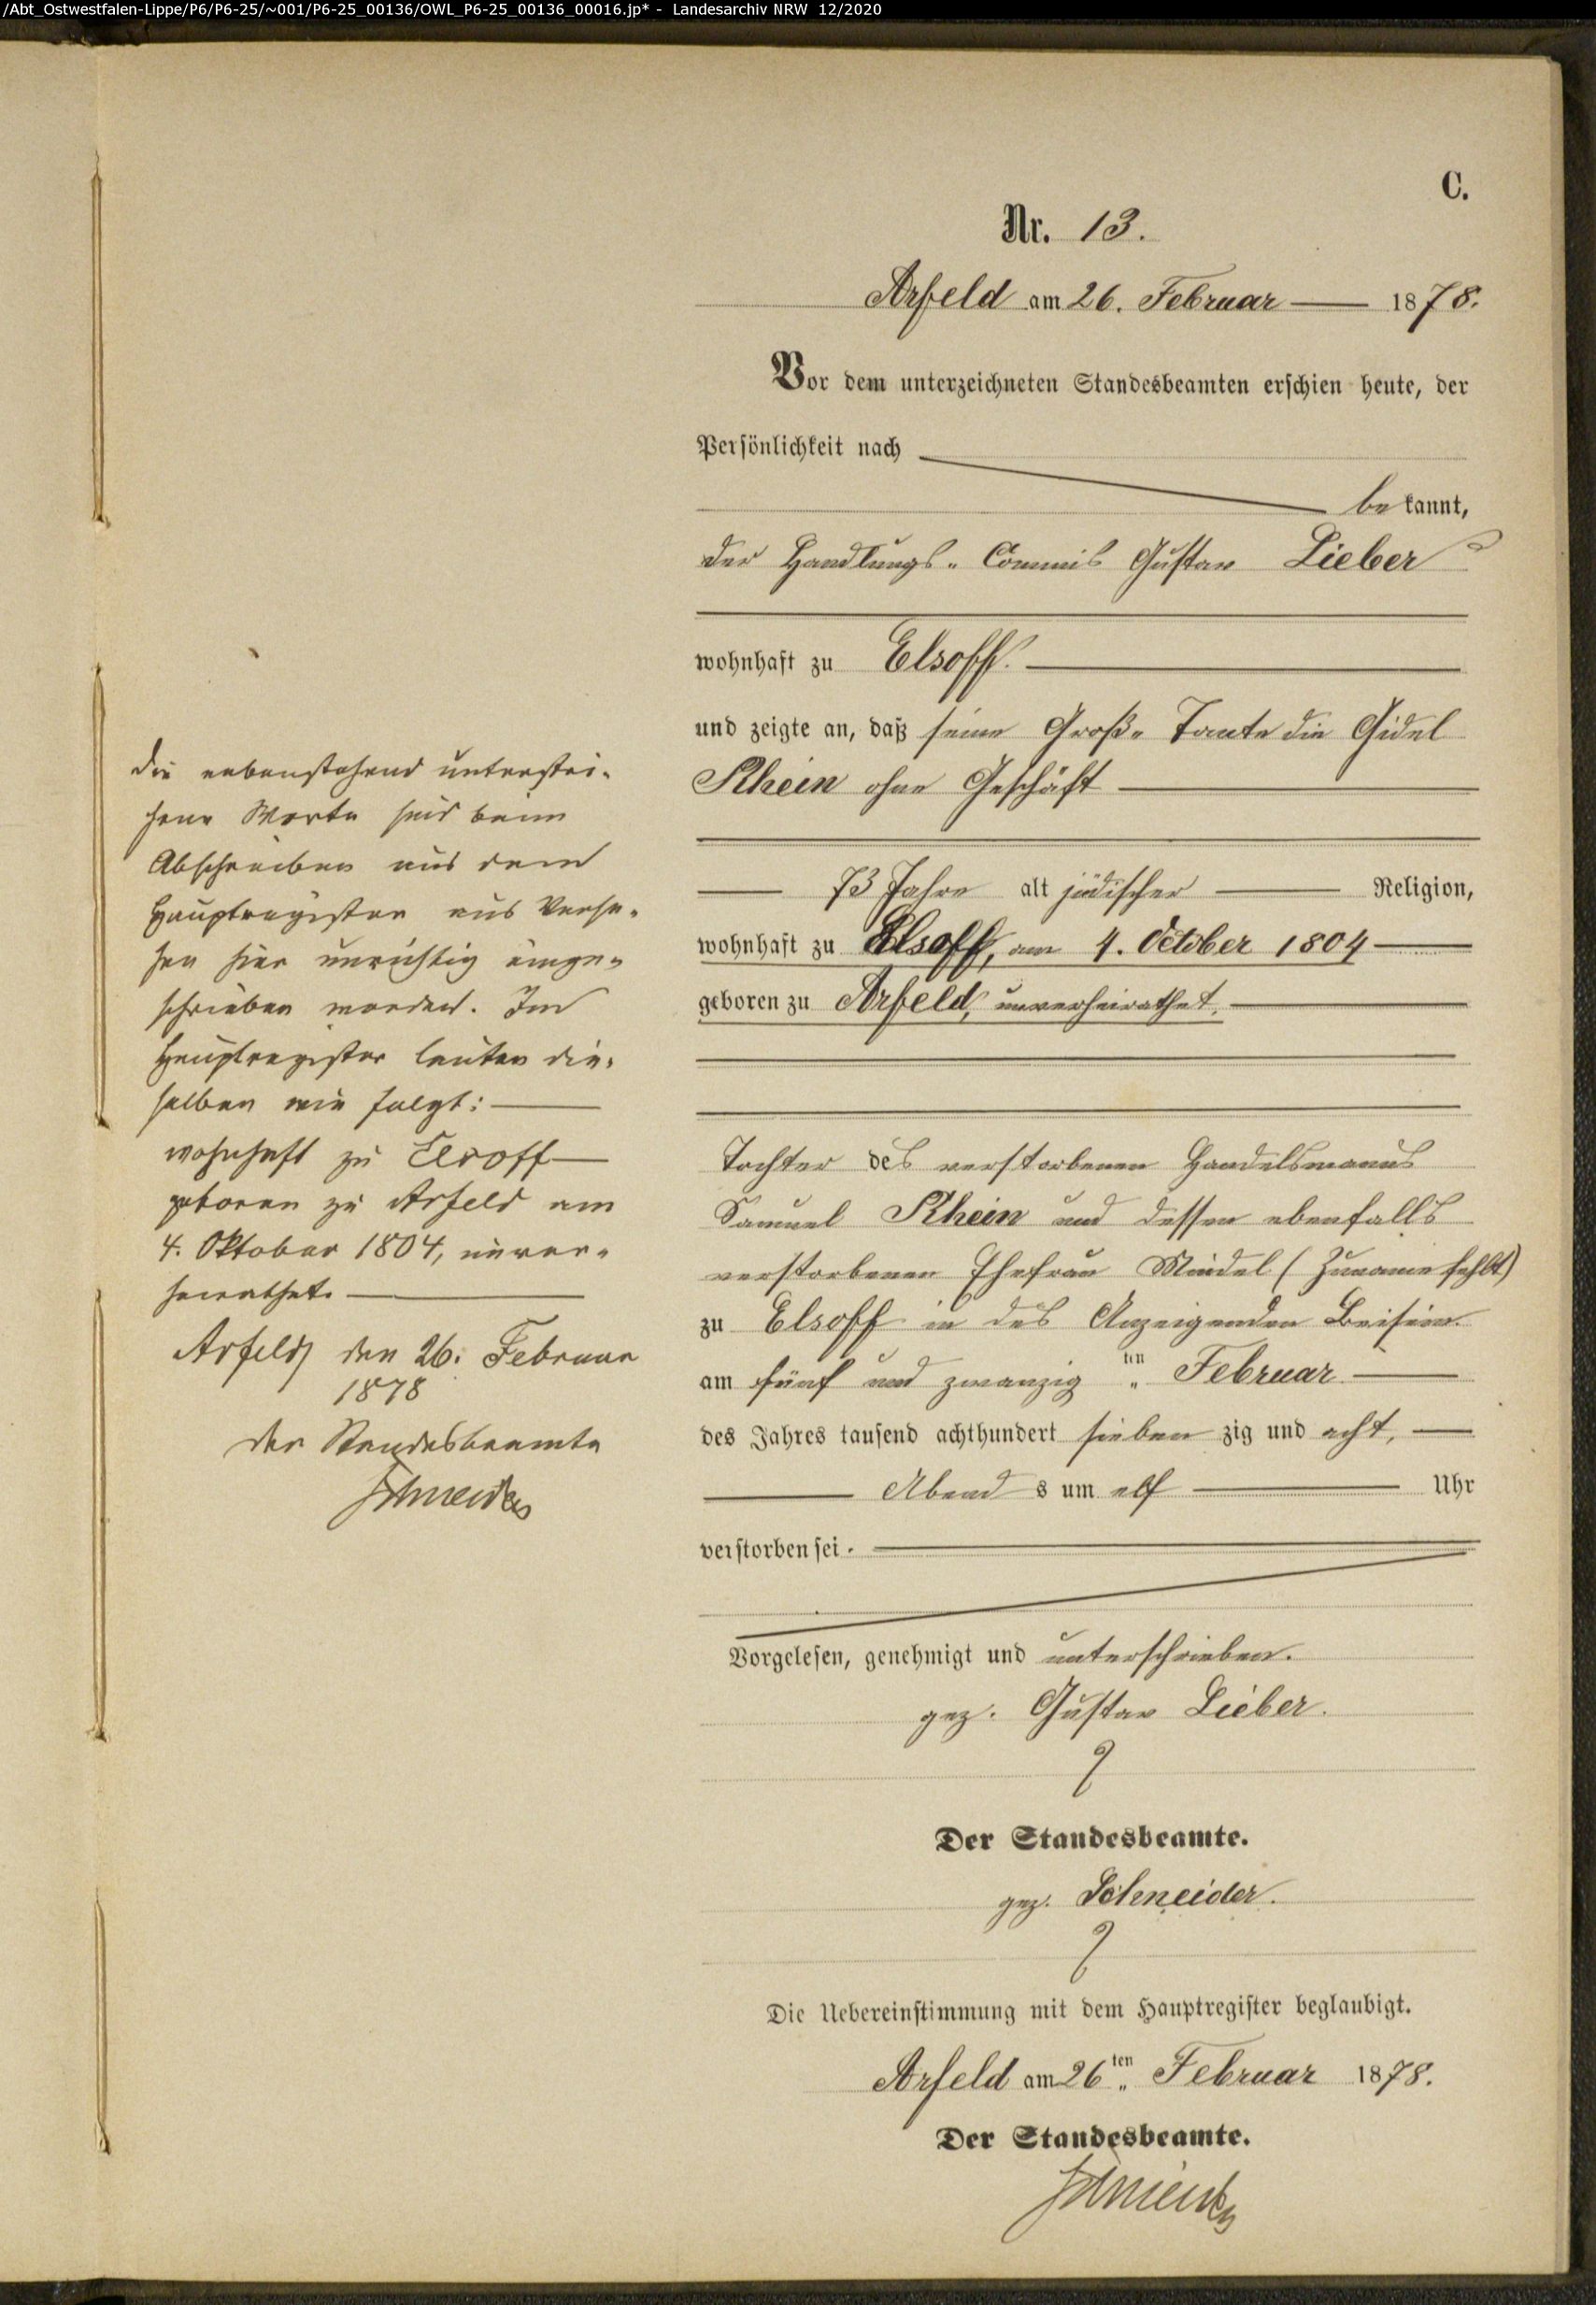 /Abt_Ostwestfalen-Lippe/P6/P6-25/~001/P6-25_00136/OWL_P6-25_00136_00016.jp* - Landesarchiv NRW 12/2020
C.
Nr. 13.
Arfeld am 26. Februar 1878.
Vor dem unterzeichneten Standesbeamten erschien heute, der
Persönlichkeit nach
bekannt,
der Handlungs-Commis Gustav Lieber
wohnhaft zu Elsoff.
und zeigte an, daß seine Groß-Tante die Gidel
Rhein ohne Geschäft
73 Jahre alt jüdischer Religion,
wohnhaft zu Elsoff, am 4. October 1804
geboren zu Arfeld, unverheirathet.
Tochter des verstorbenen Handelsmanns
Samuel Rhein und dessen ebenfalls
verstorbenen Ehefrau Mindel (Zuname fehlt)
zu Elsoff in des Anzeigenden Beisein
am fünf und zwanzig ten Februar
des Jahres tausend achthundert siebenzig und acht,
Abends um elf Uhr
verstorben sei.
Vorgelesen, genehmigt und unterschrieben.
gez. Gustav Lieber.
Der Standesbeamte.
gez. Schneider.
Die Uebereinstimmung mit dem Hauptregister beglaubigt.
Arfeld am 26ten Februar 1878.
Der Standesbeamte.
Schneider
die nebenstehend unterstri-
henen Worte sind beim
Abschreiben aus dem
Hauptregister aus Verse-
hen hier unrichtig einge-
schrieben worden. Im
Hauptregister lauten die-
selben wie folgt:
wohnhaft zu Elsoff
geboren zu Arfeld am
4. Oktober 1804, unver-
heirathet.
Arfeld, den 26. Februar
1878
Der Standesbeamte
Schneider